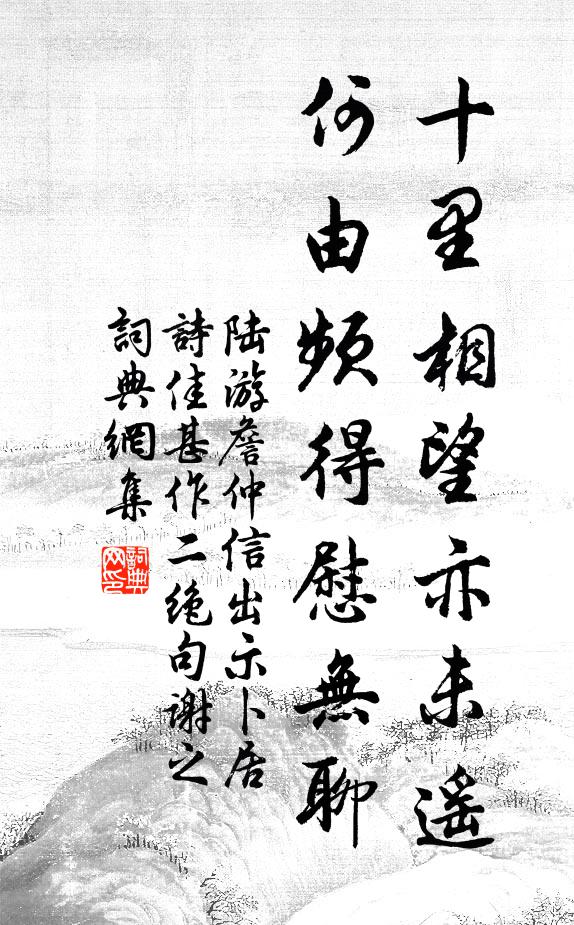 十里相望亦未遥
何由頻得慰無聊
陆游詹仲信出示卜居
詩佳甚作二絶句谢之
詞典網集
詞典网印